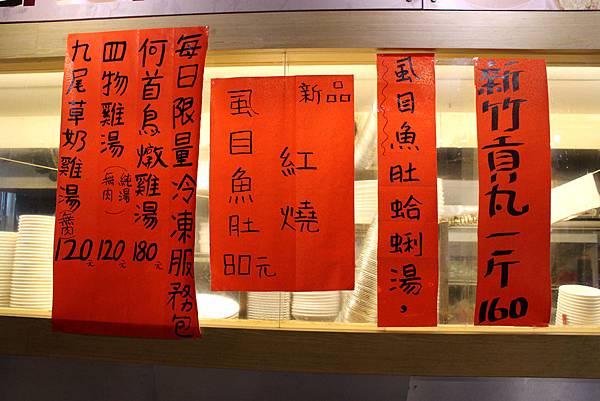 每日限量冷凍服務包
何首烏燉雞湯 180元
四物雞湯(純湯無肉) 120元
九尾草奶雞湯 無肉 120元
新品
紅燒
虱目魚肚 80元
虱目魚肚蛤蜊湯,
新竹貢丸一斤 160